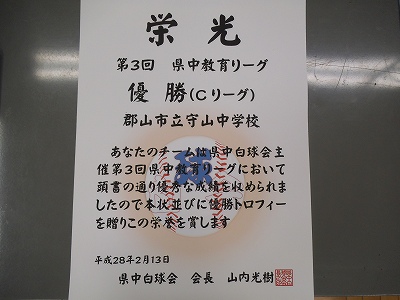 栄光
第3回 県中教育リーグ
優勝(Cリーグ)
郡山市立守山中学校
あなたのチームは県中白球会主
催第3回県中教育リーグにおいて
頭書の通り優秀な成績を収められま
したので本状並びに優勝トロフィー
を贈りこの栄誉を賞します
平成28年2月13日
県中白球会 会長 山内光樹